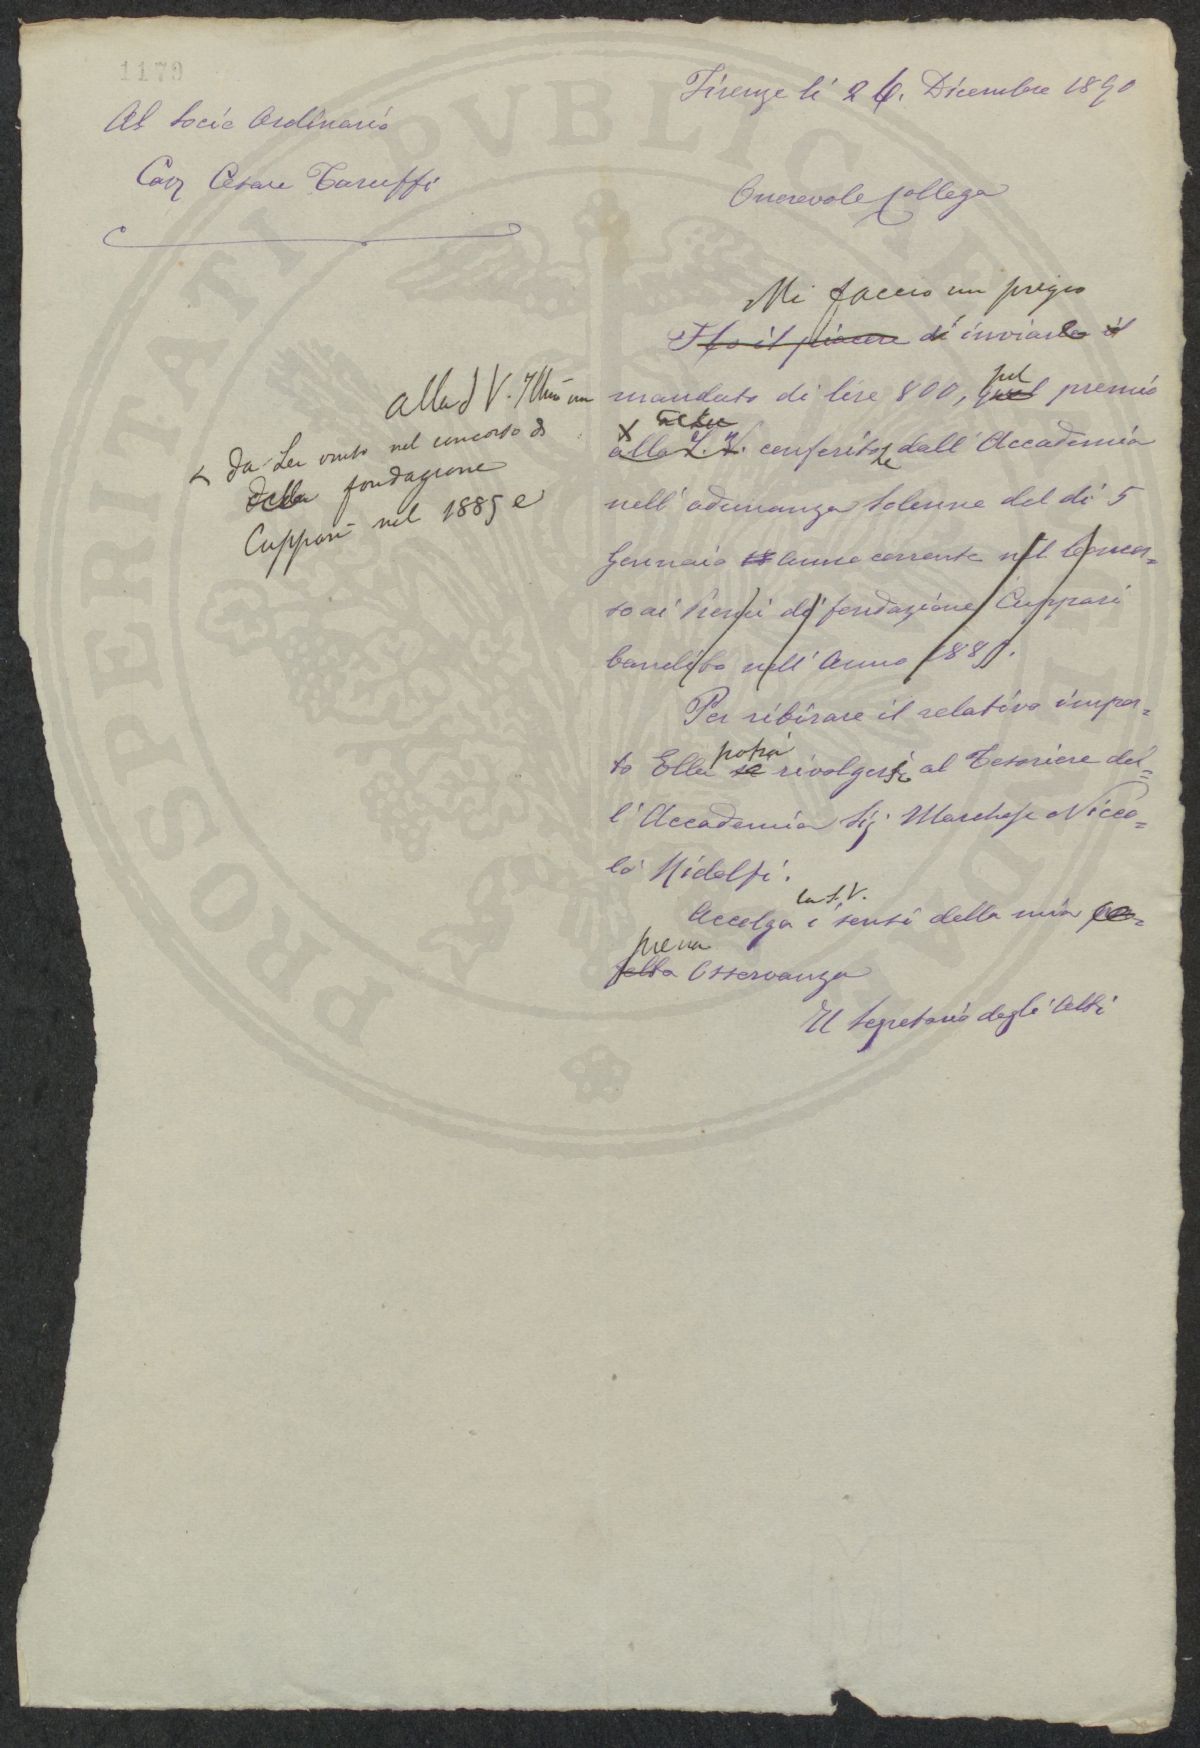 1179
Firenze li 26. Dicembre 1890
Al Socio Ordinario
Cav Cesare Taruffi
Onorevole Collega
Mi faccio un pregio
Ho il piacere di inviarle il
alla S V. Illma un
mandato di lire 800, qual premio
pel
X
alla S. V. conferitole dall'Accademia
nell'adunanza solenne del dì 5
Gennaio anno corrente nel Concor=
so ai Premi di fondazione Cuppari
bandito nell'Anno 1885.
x da Lei vinto nel concorso di
della fondazione
Cuppari nel 1885 e
Per ritirare il relativo impor=
potrà
to Ella se rivolgersi al Tesoriere del=
l'Accademia Sig. Marchese Nicco=
lò Ridolfi.
la S. V.
Accolga i sensi della mia per=
piena
fetta Osservanza
Il Segretario degli Atti
PROSPERITATI PVBLICAE